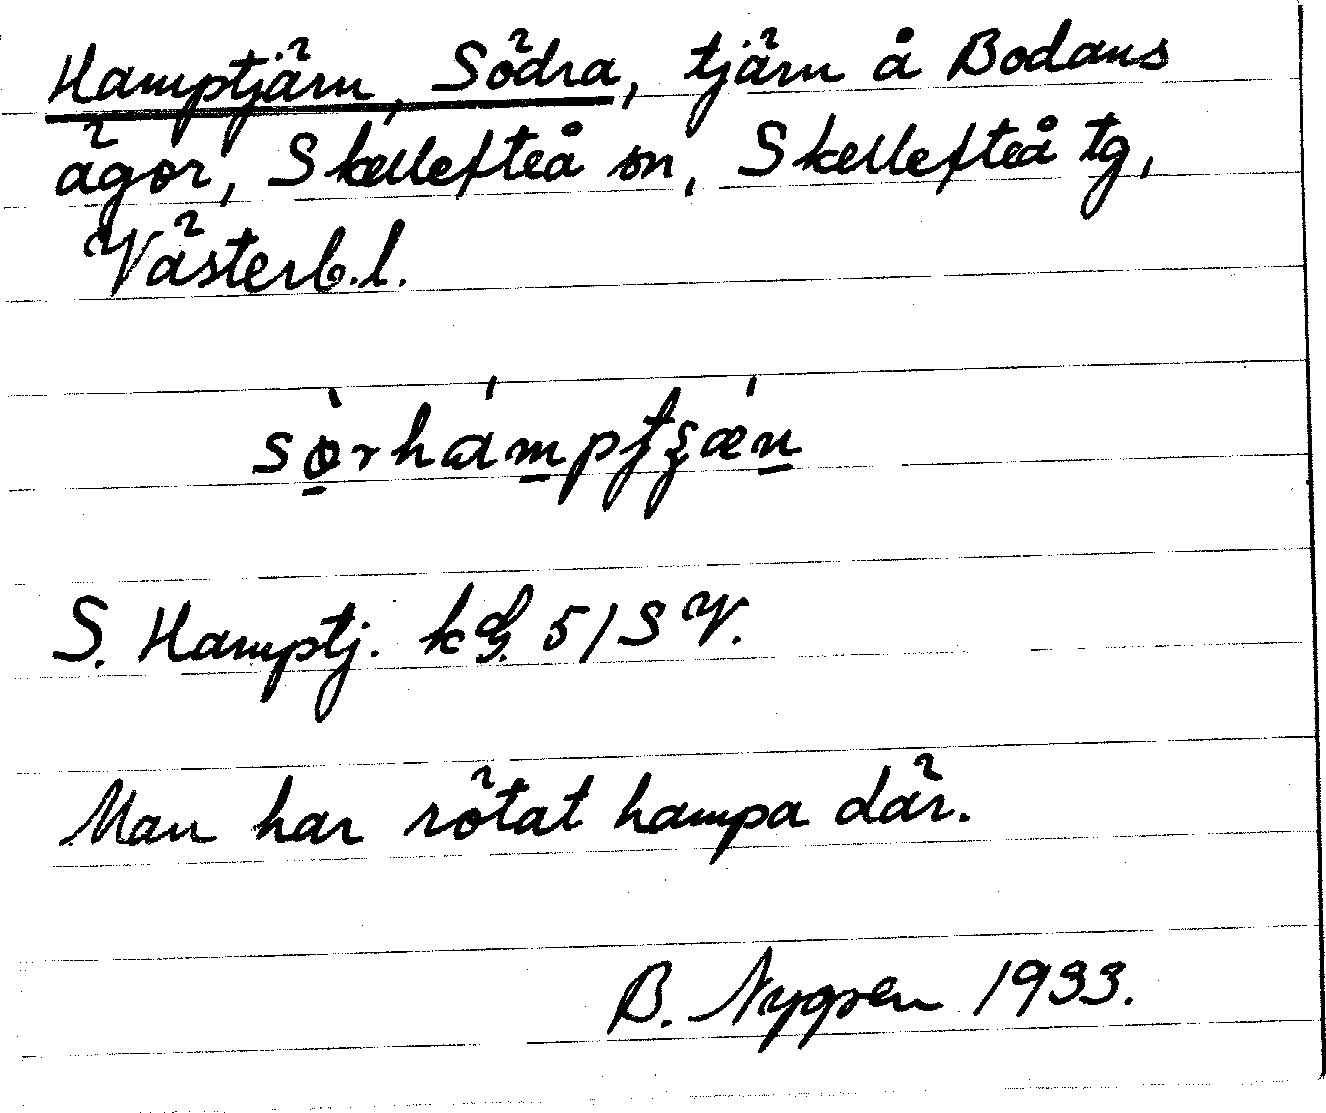 Hamptjärn, Södra, tjärn å Bodans
ägor, Skellefteå sn, Skellefteå tg,
Västerb.l.
sø̀rhám̠pƭʒǽn̠
S. Hamptj. kg. 5/SV.
Man har rötat hampa där.
B. Nygren 1933.